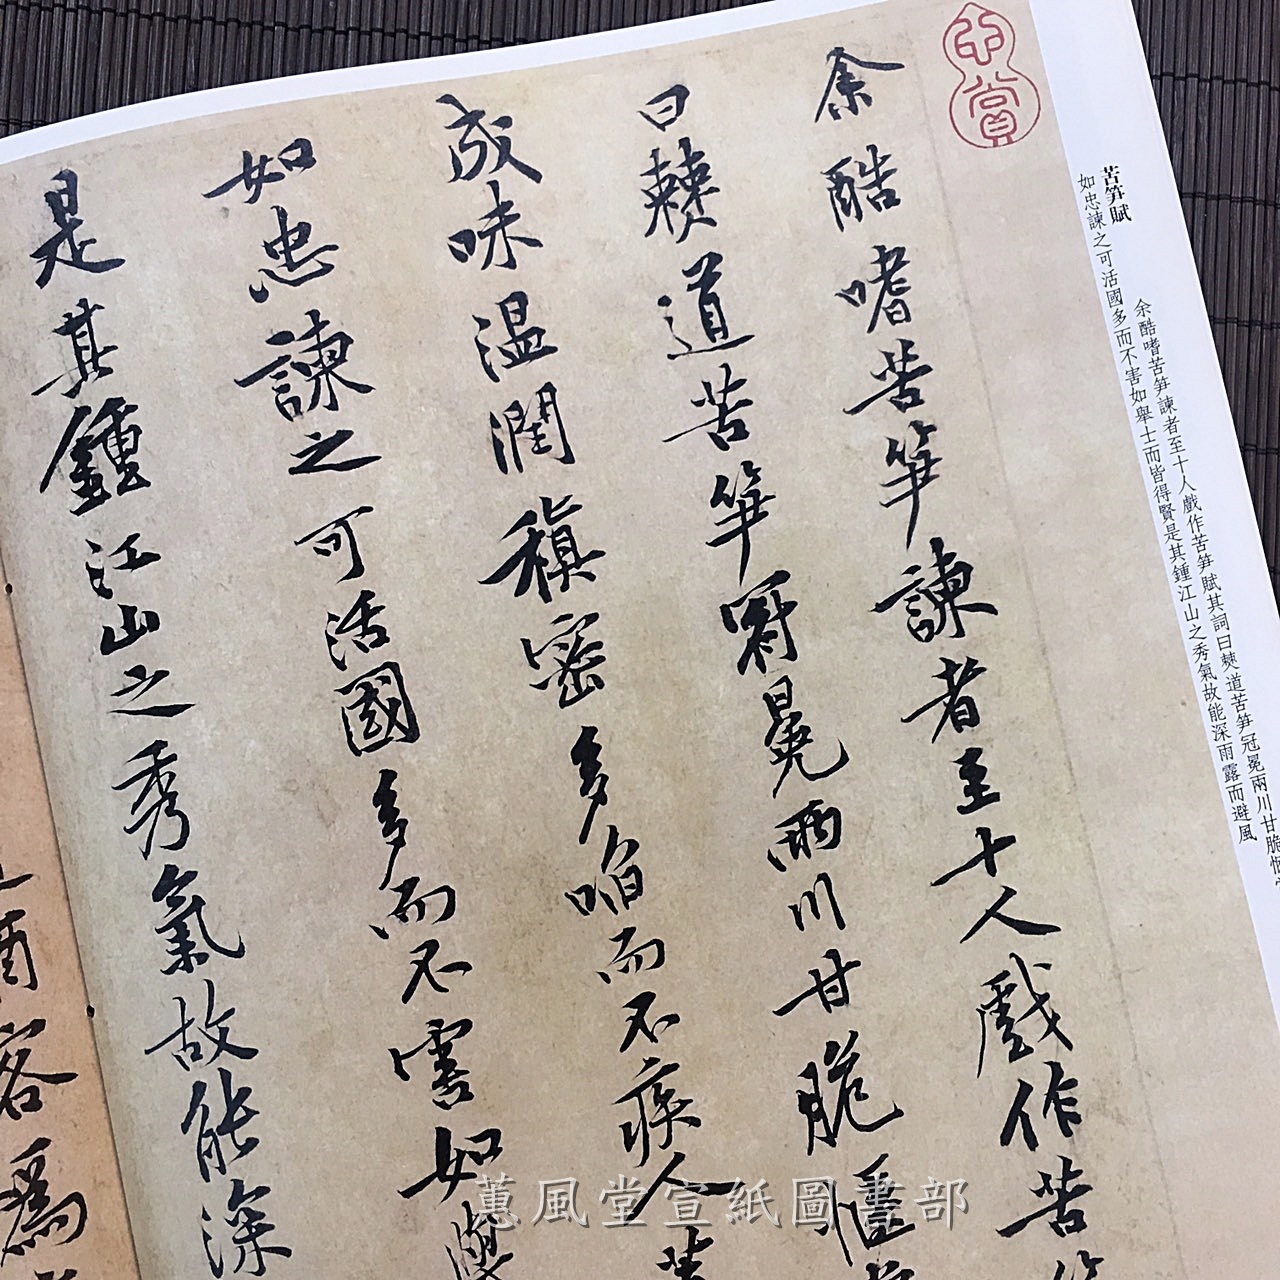 苦笋賦
余酷嗜苦笋諫者至十人戲作苦笋賦其詞曰僰道苦笋冠冕兩川甘脆愜
如忠諫之可活國多而不害如舉士而皆得賢是其鍾江山之秀氣故能深雨露而避風
賞
余酷嗜苦笋諫者至十人戲作苦
曰僰道苦笋冠冕兩川甘脆愜
成味温潤稹密多啗而不疾人
如忠諫之可活國多而不害如
是其鍾江山之秀氣故能深
客爲
蕙風堂宣紙圖書部